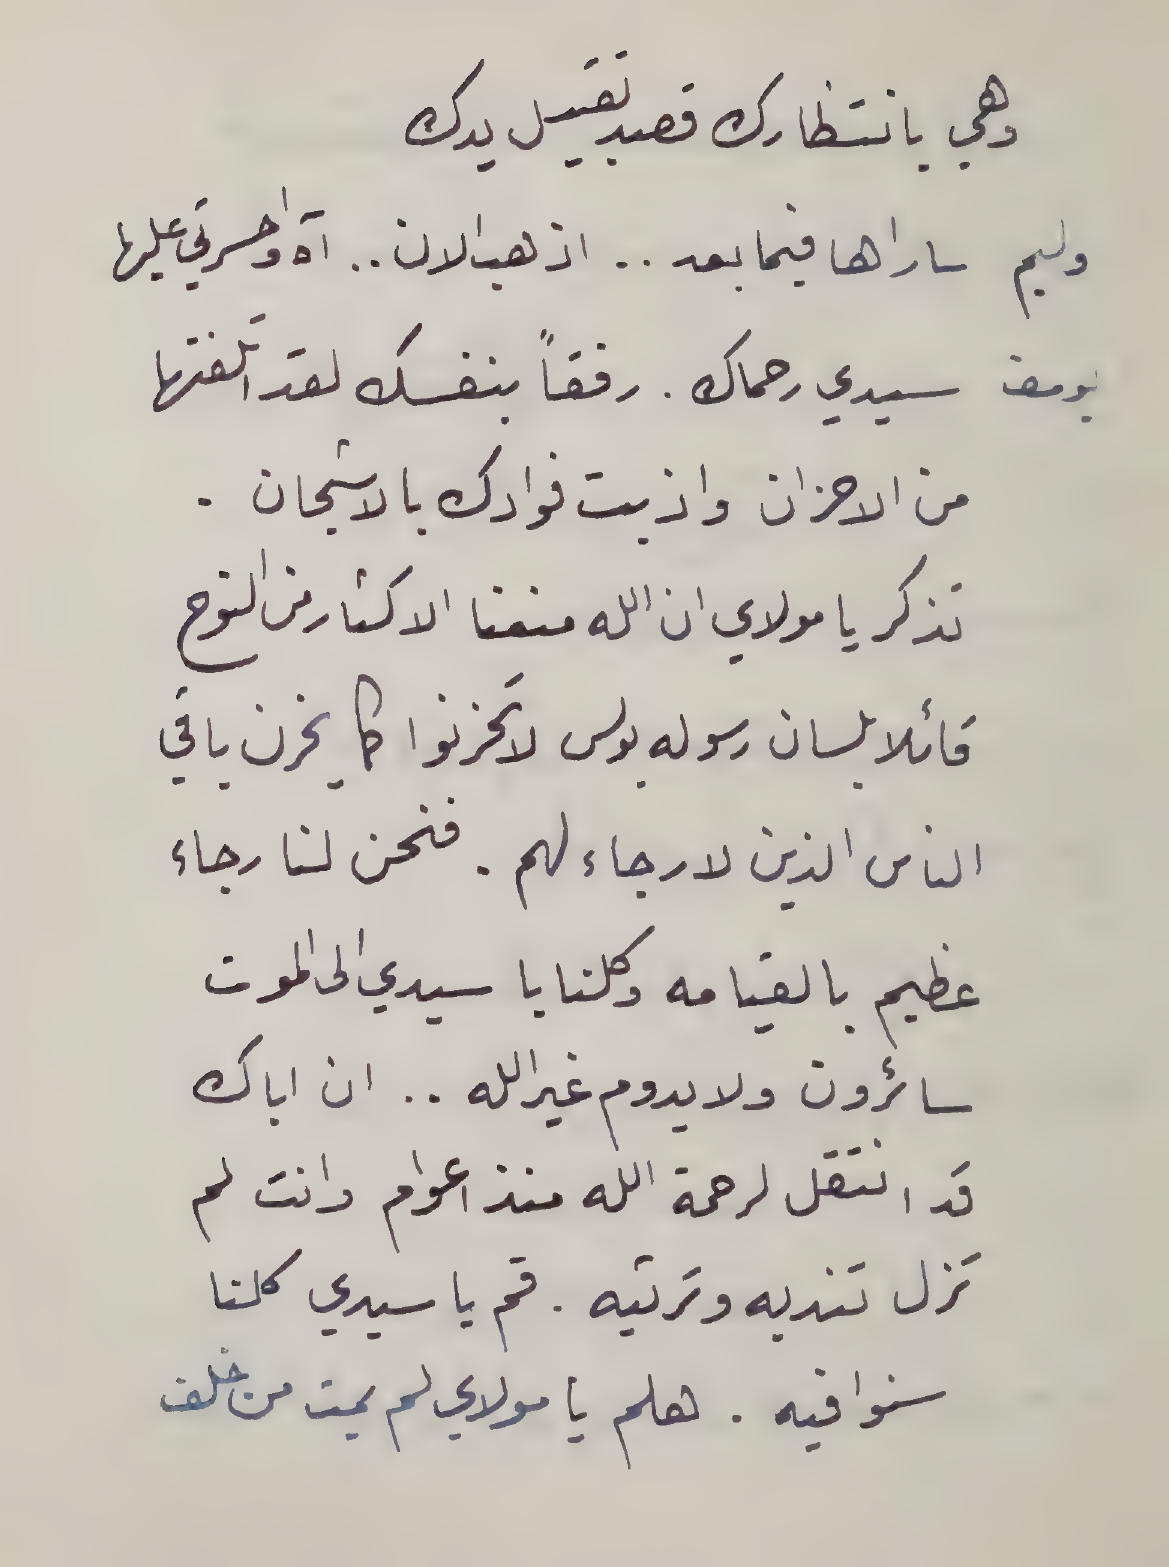 وهي بانتظارك قصد تقبيل يدك
وليم ساراها فيما بعد .. اذهب الان .. آه واحسرتي عليها
يوسف سيدي رحماك . رفقاً بنفسك لقد اتلفتها
من الاحزان واذبت فوادك بالاشجان .
تذكر يا مولاي ان الله منعنا الاكثار من النوح
قائلا بلسان رسوله بولس لا تحزنوا كما يحزن باقي
الناس الذين لا رجاء لهم . فنحن لنا رجاء
عظيم بالقيامه وكلنا يا سيدي الى الموت
سائرون ولا يدوم غير الله .. ان اباك
قد انتقل لرحمة الله منذ اعوام وانت لم
تزل تندبه وترثيه . قم يا سيدي كلنا
سنوافيه . هلم يا مولاي لم يمت من خلف